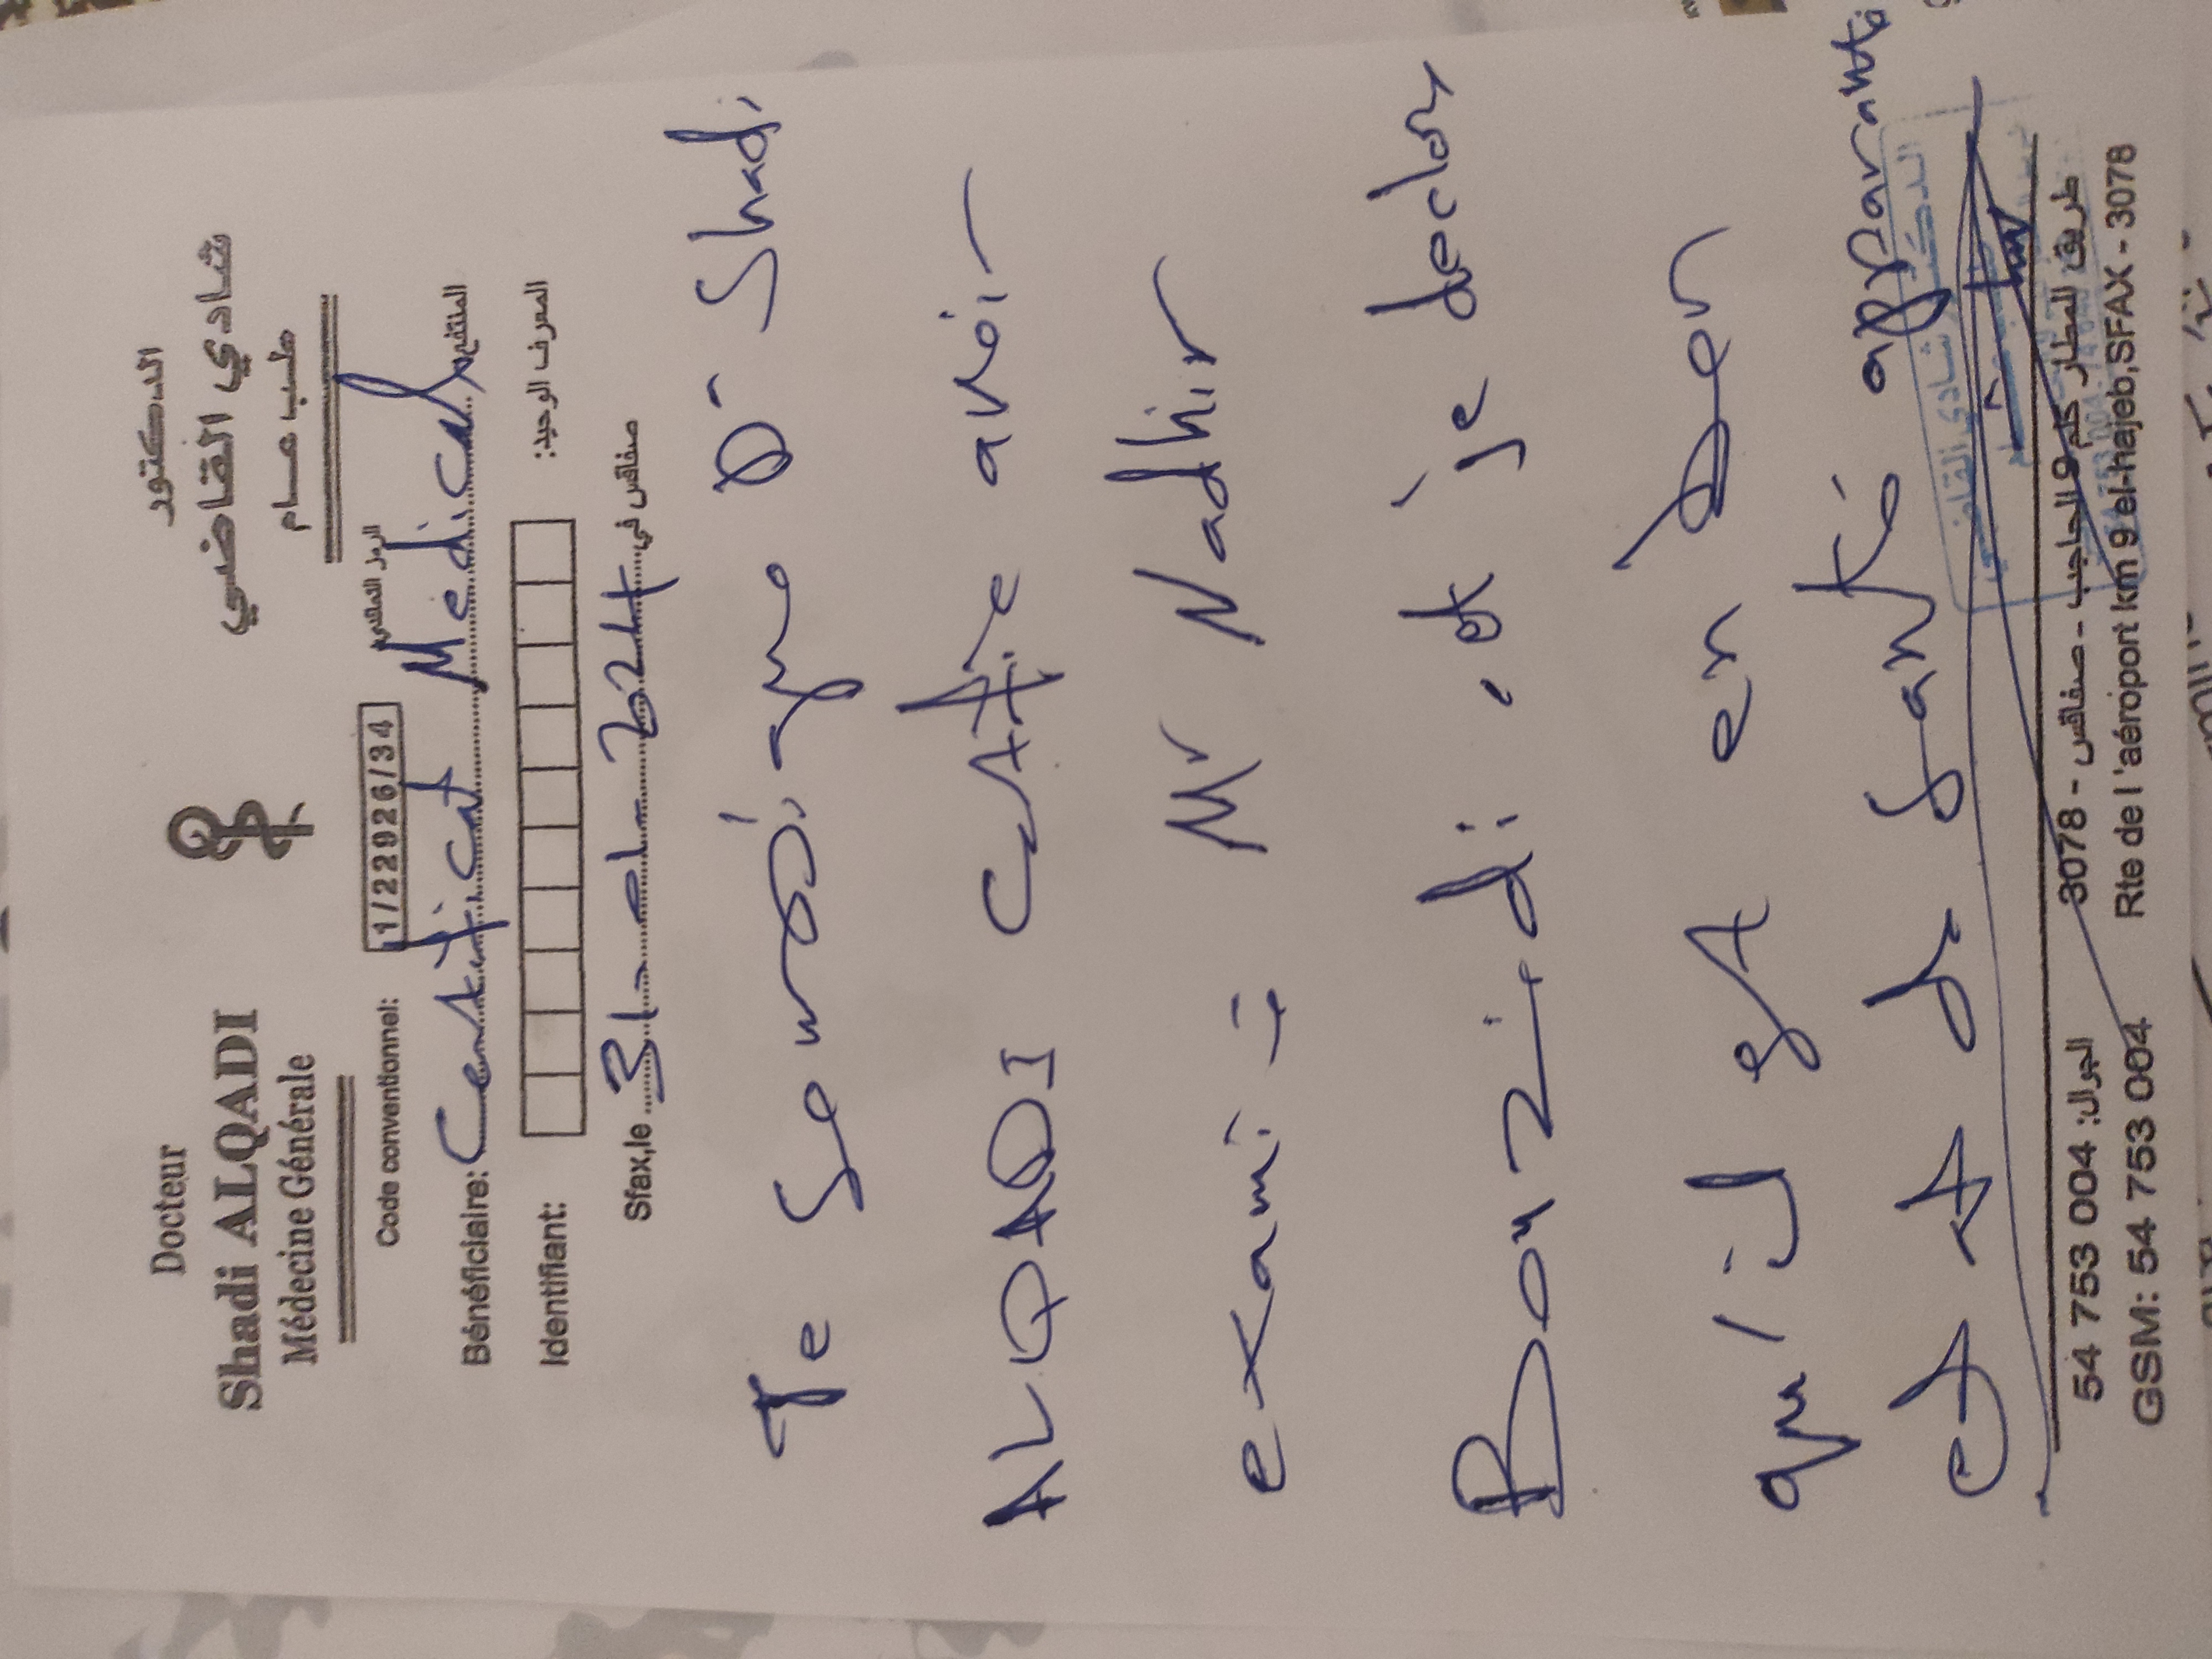 Docteur
Shadi ALQADI
Médecine Générale
الدكتور
شادي القاضي
طب عام
Code conventionnel: 1/22926/34 الرمز التعاقدي
Bénéficiaire: Certificat Medical المنتفع
Identifiant: المعرف الوحيد:
Sfax,le 31-01-2024 صفاقس في
Je Soussigné Dr Shadi
ALQADI Certifie avoir
examiné Mr Nadhir
Bouzidi, et je declare
qu'il est en bon
état de Santé apparente
54 753 004 :الجوال 3078 - طريق المطار كلم 9 الحاجب - صفاقس
GSM: 54 753 004 Rte de l'aéroport km 9 el-hajeb,SFAX - 3078
الدكتور شادي القاضي